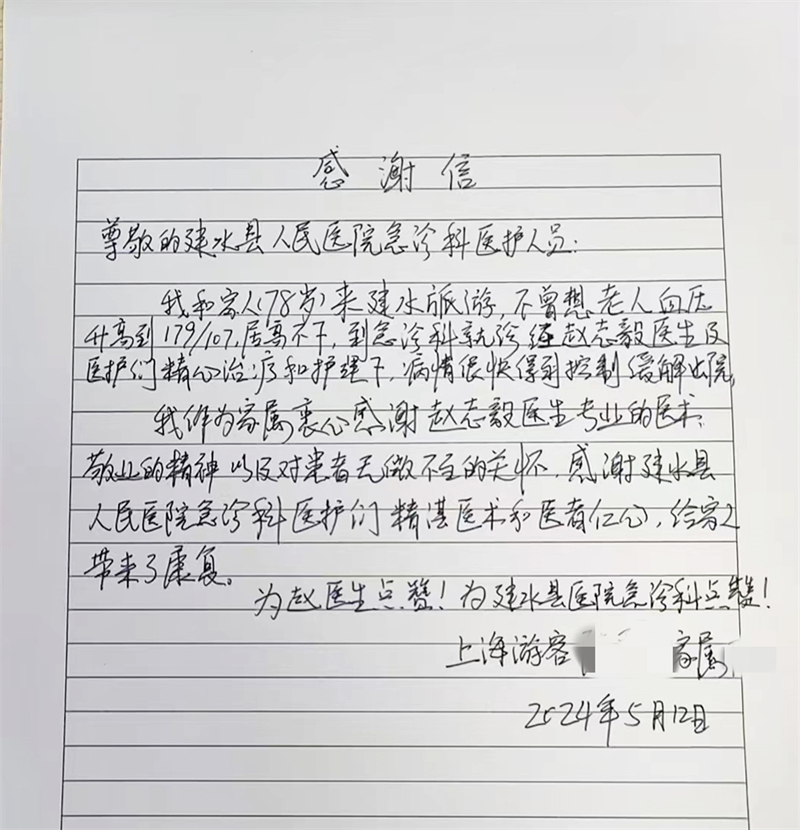 感谢信
尊敬的建水县人民医院急诊科医护人员：
我和家人(78岁)来建水旅游，不曾想老人血压
升高到179/107，居高不下，到急诊科就诊经赵志毅医生及
医护们精心治疗和护理下，病情很快得到控制缓解出院，
我作为家属衷心感谢赵志毅医生专业的医术、
敬业的精神以及对患者无微不至的关怀，感谢建水县
人民医院急诊科医护们精湛医术和医者仁心，给家人
带来了康复。
为赵医生点赞！为建水县医院急诊科点赞！
上海游客 家属
2024年5月12日